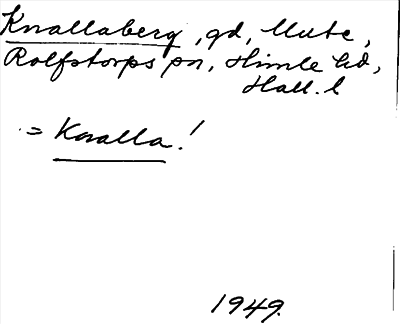 Knallaberg, gd, Uute,
Rolfstorps sn, Himle hd,
Hall. l
= Knalla!
1949.